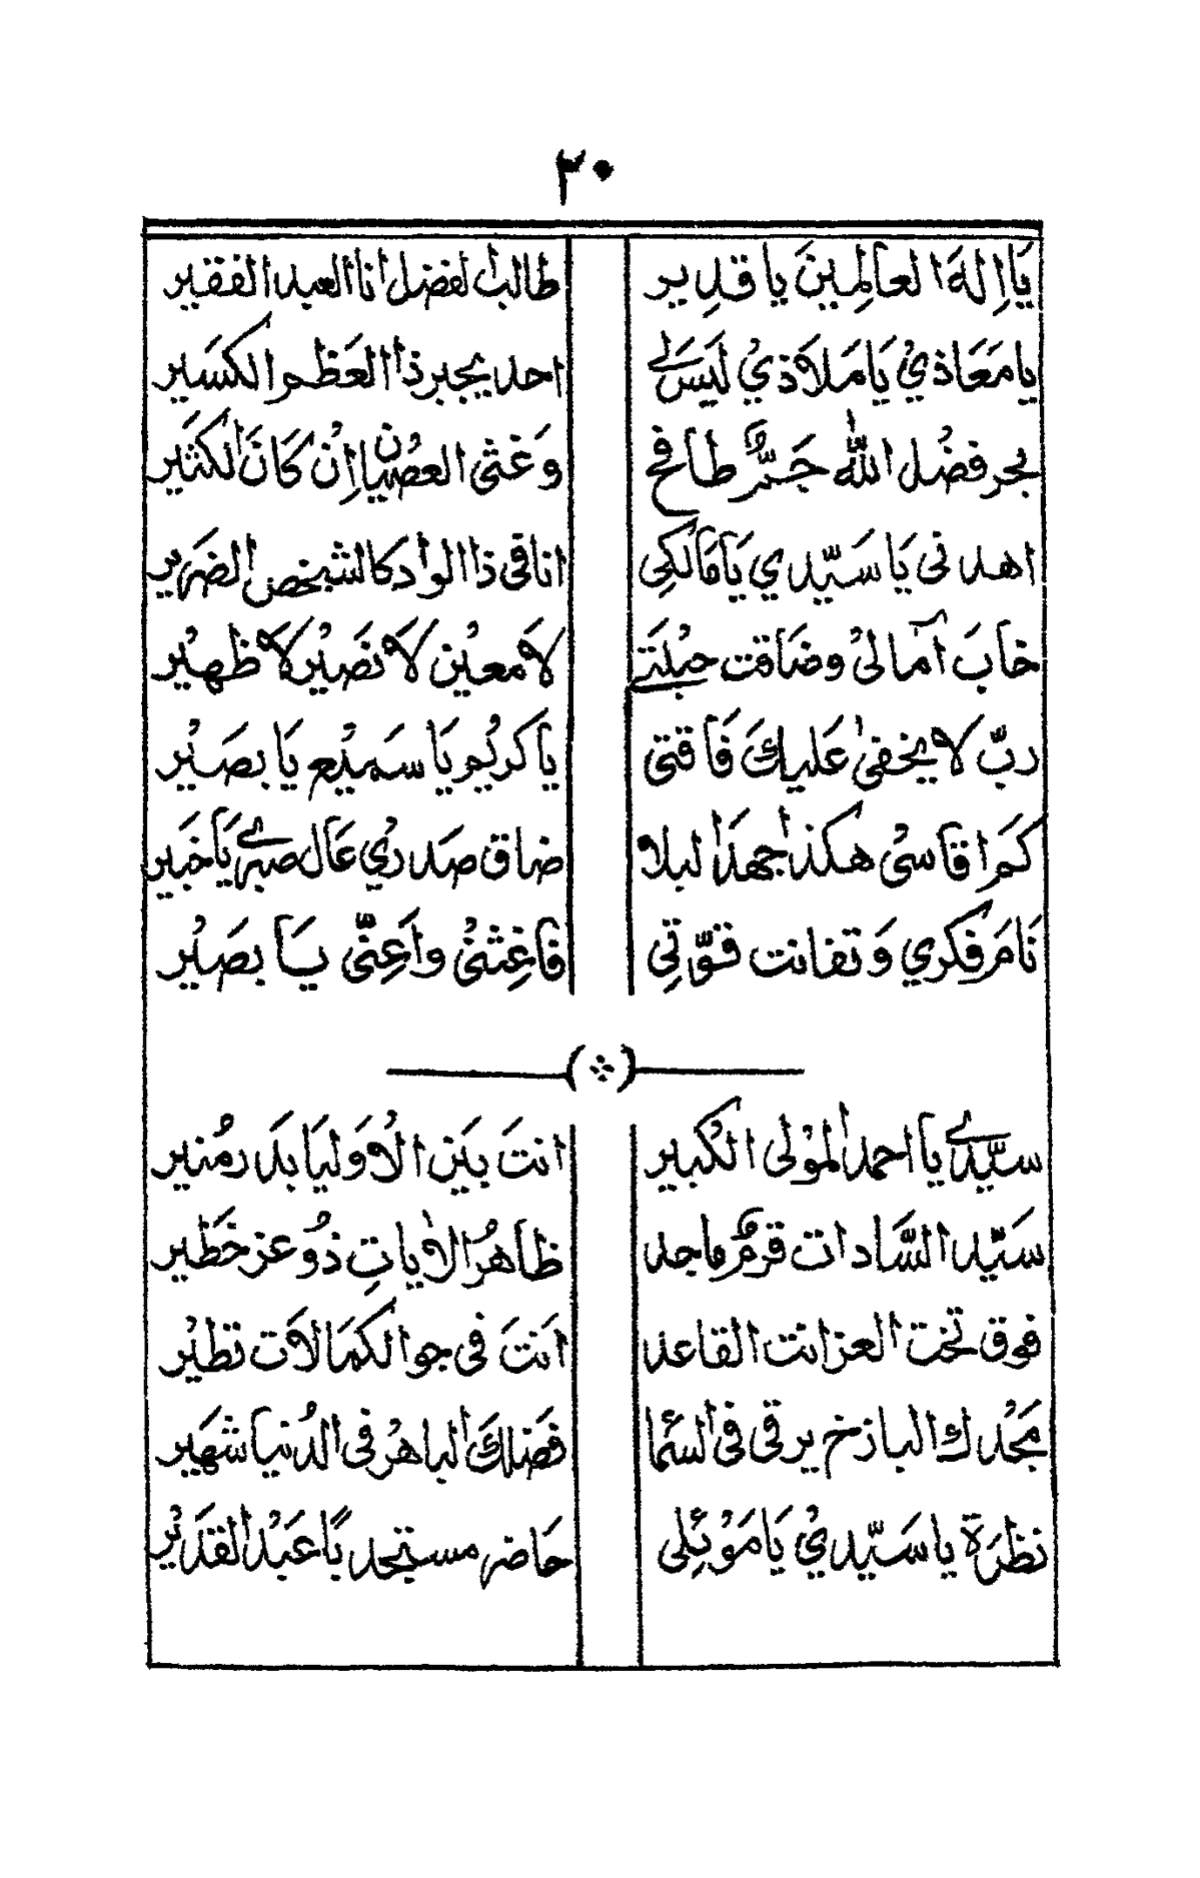 ٣٠
يَا اِلٰهَ العَالَمِينَ يَا قَدِير طالب الفضل انا العبد الفقير
يا مَعَاذِيْ يَا مَلَاذِيْ لَيسَ لي احد يجبر ذا العَظم الكَسَير
بحر فضْل اللّٰه جَمٌّ طافح وَغثى العصيان اِنْ كَانَ الكثير
اهدنى يَا سَيّدي يَا مَالكِى انا فى ذا الواد كالشخص الضَرير
خابَ آمالىْ وضَاقت حيْلَتي لَا معيْن لَا نصَيْر لَا ظهيْر
ربّ لا يخفىٰ عَليكَ فَاقتى يا كريْم يَا سَميْع يَا بصَيْر
كَم اقاسىْ هكذا جهدَ البلا ضاق صَدريْ عَال صبري يَا خبَير
نَامَ فكري وَ تفانت قوّتِي فاغِثنىْ واَعِنّى يَا بصَيْر
سيّدي يا احمد المْولى الكُبير انتَ بيَن الاُوَليَا بَدر مُنير
سَيّد السَّادات قرمٌ ماجد ظاهرُ الاٰياتِ ذوُ عز خَطَير
فوق تخت العز انت القاعد اَنتَ فى جو الكمَالَات نظيْر
مَجْدك الباذخ يرقى فى السَّما فَضلكَ الباهرُ فى الدُنيا شهَير
نظرَة يا سَيّديْ يَا مَوْئِلى حَاضر مستنجد يَا عَبْد القدَيْر